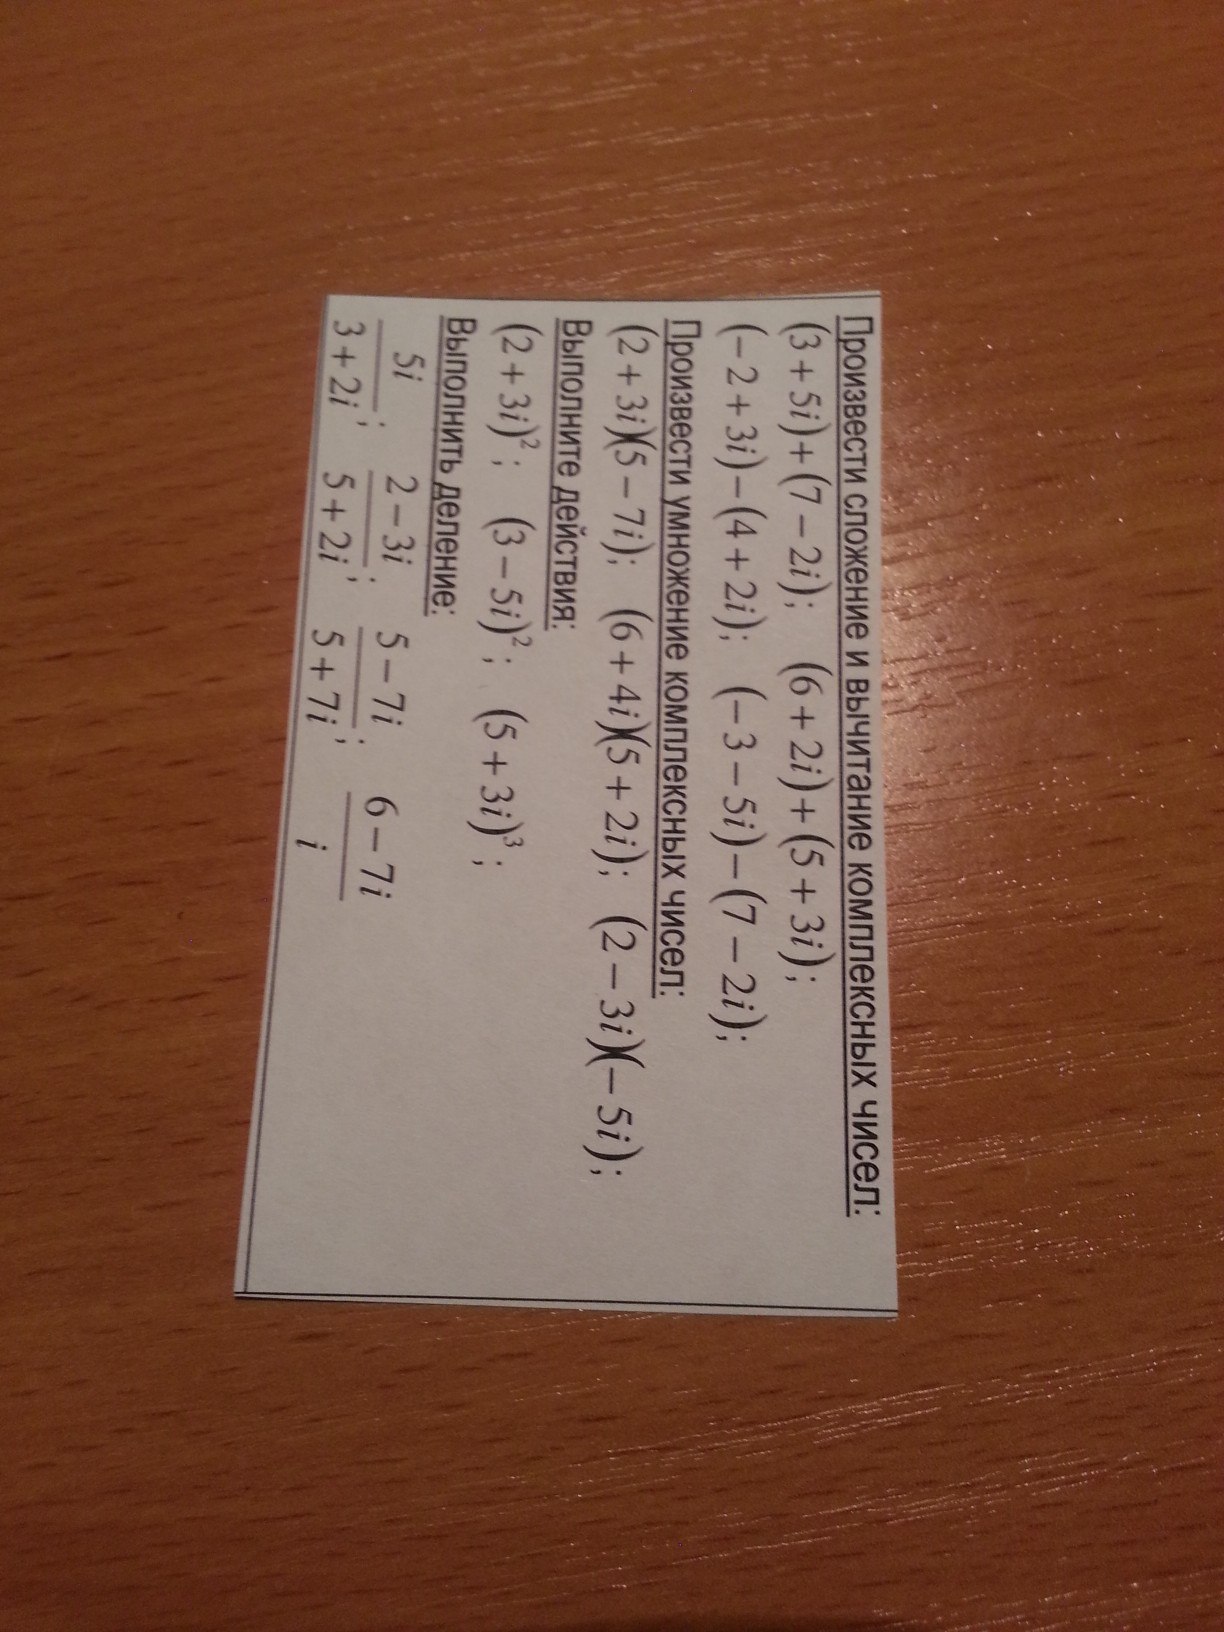 Произвести сложение и вычитание комплексных чисел:
(3 + 5i) + (7 − 2i); (6 + 2i) + (5 + 3i);
(− 2 + 3i) − (4 + 2i); (− 3 − 5i) − (7 − 2i);
Произвести умножение комплексных чисел:
(2 + 3i)(5 − 7i); (6 + 4i)(5 + 2i); (2 − 3i)(− 5i);
Выполните действия:
(2 + 3i)²; (3 − 5i)²; (5 + 3i)³;
Выполнить деление:
5i / 3 + 2i; 2 − 3i / 5 + 2i; 5 − 7i / 5 + 7i; 6 − 7i / i